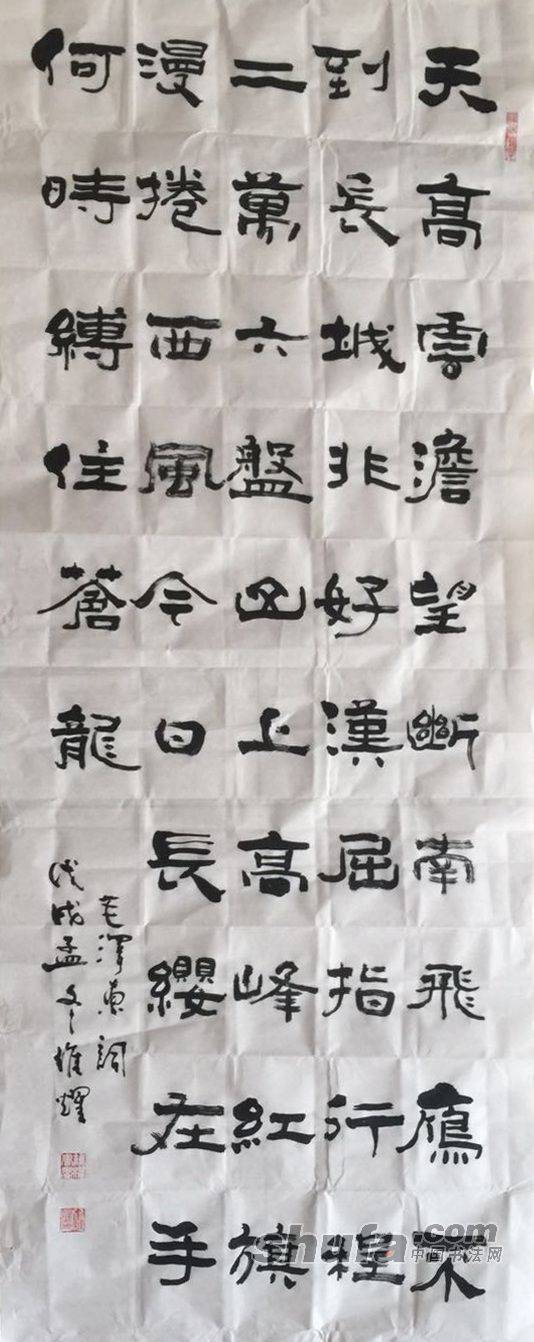 天高雲澹望斷南飛鴈不
到長城非好漢屈指行程
二萬六盤山上高峰紅旗
漫捲西風今日長纓在手
何時縛住蒼龍
毛澤東詞
戊戌孟冬維耀
shufa.com
中国书法网